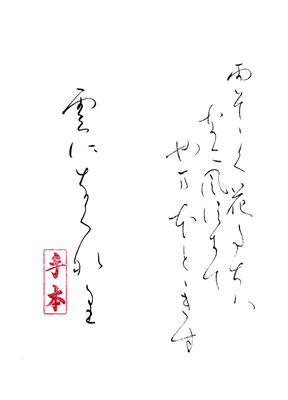 雨そゝく花たちは
なに風すきて
やまほとゝきす
雲になくなり
手本